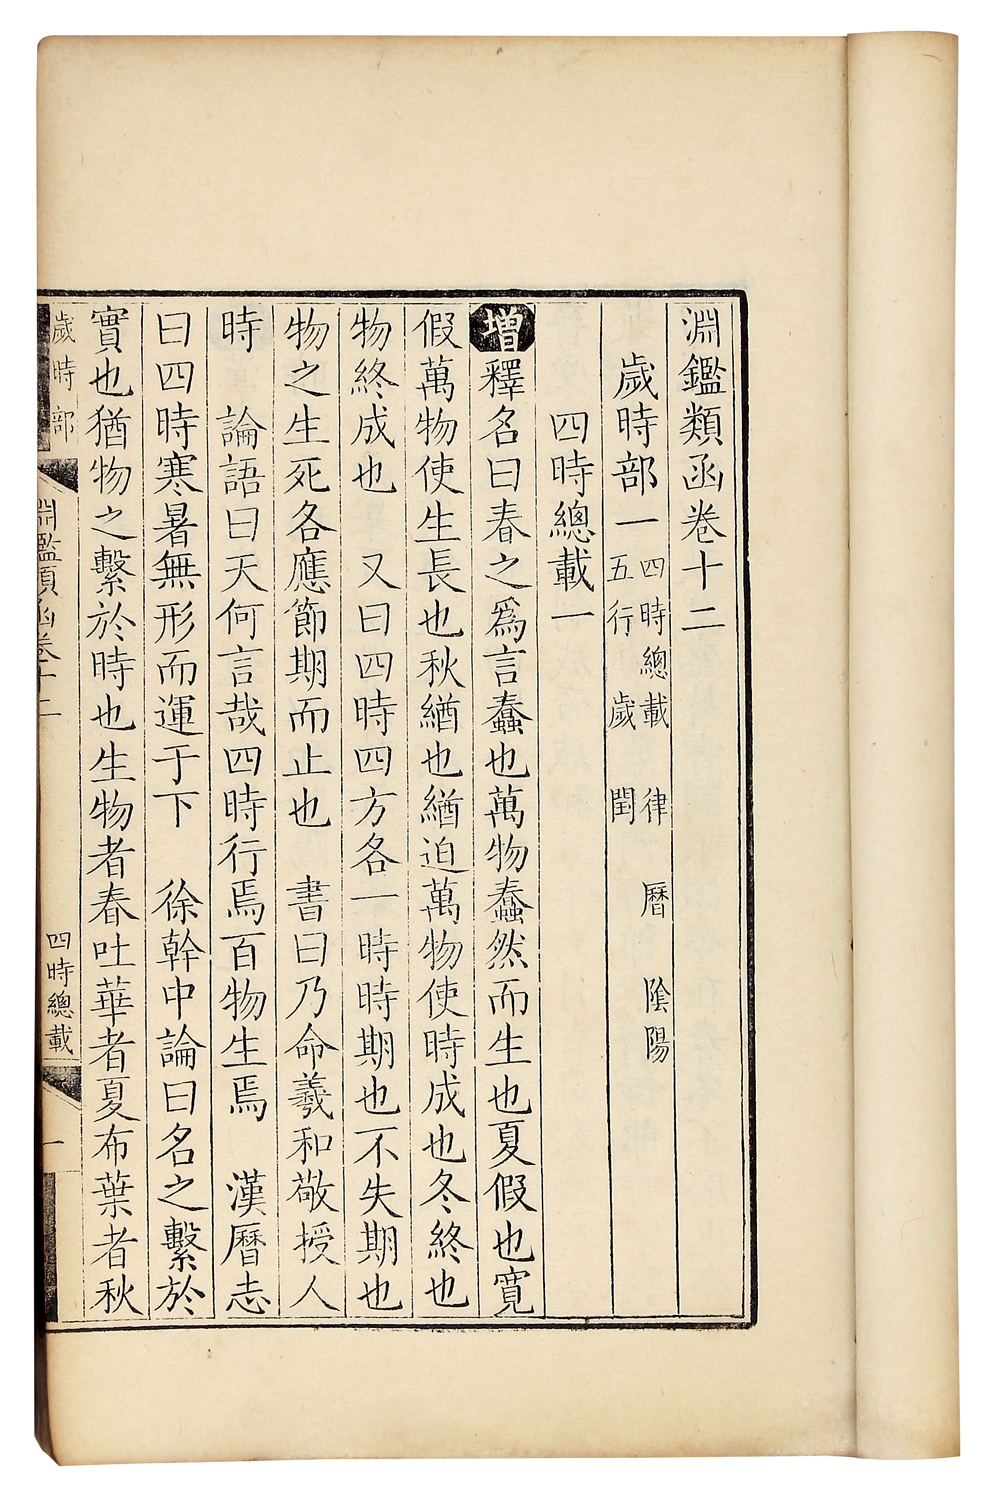 淵鑑類函卷十二
歲時部一
四時總載 律 曆 陰陽
五行 歲 閏
四時總載一
增釋名曰春之爲言蠢也萬物蠢然而生也夏假也寬
假萬物使生長也秋緧也緧迫萬物使時成也冬終也
物終成也 又曰四時四方各一時時期也不失期也
物之生死各應節期而止也 書曰乃命羲和敬授人
時 論語曰天何言哉四時行焉百物生焉 漢曆志
曰四時寒暑無形而運于下 徐幹中論曰名之繫於
實也猶物之繫於時也生物者春吐華者夏布葉者秋
歲時部
淵鑑類函卷十二
四時總載
一